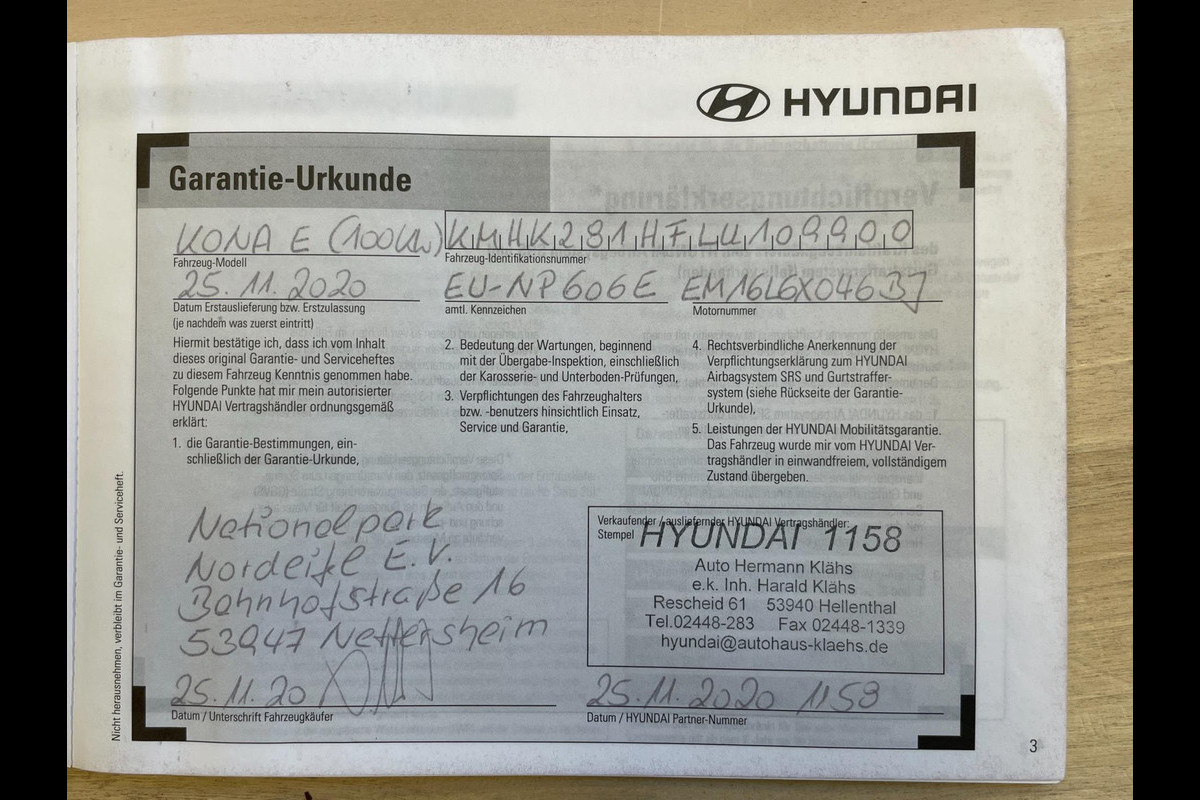 HYUNDAI
Garantie-Urkunde
KONA E (100KW) KMHK281HFLU109900
Fahrzeug-Modell Fahrzeug-Identifikationsnummer
25.11.2020 EU-NP606E EM16L6X046B7
Datum Erstauslieferung bzw. Erstzulassung amtl. Kennzeichen Motornummer
(je nachdem was zuerst eintritt)
Hiermit bestätige ich, dass ich vom Inhalt
dieses original Garantie- und Serviceheftes
zu diesem Fahrzeug Kenntnis genommen habe.
Folgende Punkte hat mir mein autorisierter
HYUNDAI Vertragshändler ordnungsgemäß
erklärt:
1. die Garantie-Bestimmungen, ein-
schließlich der Garantie-Urkunde,
2. Bedeutung der Wartungen, beginnend
mit der Übergabe-Inspektion, einschließlich
der Karosserie- und Unterboden-Prüfungen,
3. Verpflichtungen des Fahrzeughalters
bzw. -benutzers hinsichtlich Einsatz,
Service und Garantie,
4. Rechtsverbindliche Anerkennung der
Verpflichtungserklärung zum HYUNDAI
Airbagsystem SRS und Gurtstraffer-
system (siehe Rückseite der Garantie-
Urkunde),
5. Leistungen der HYUNDAI Mobilitätsgarantie.
Das Fahrzeug wurde mir vom HYUNDAI Ver-
tragshändler in einwandfreiem, vollständigem
Zustand übergeben.
Nationalpark
Nordeifel E.V.
Bahnhofstraße 16
53947 Nettersheim
25.11.20
Datum / Unterschrift Fahrzeugkäufer
Verkaufender / ausliefernder HYUNDAI Vertragshändler:
Stempel HYUNDAI 1158
Auto Hermann Klähs
e.k. Inh. Harald Klähs
Rescheid 61 53940 Hellenthal
Tel.02448-283 Fax 02448-1339
hyundai@autohaus-klaehs.de
25.11.2020 1158
Datum / HYUNDAI Partner-Nummer
Nicht herausnehmen, verbleibt im Garantie- und Serviceheft.
3